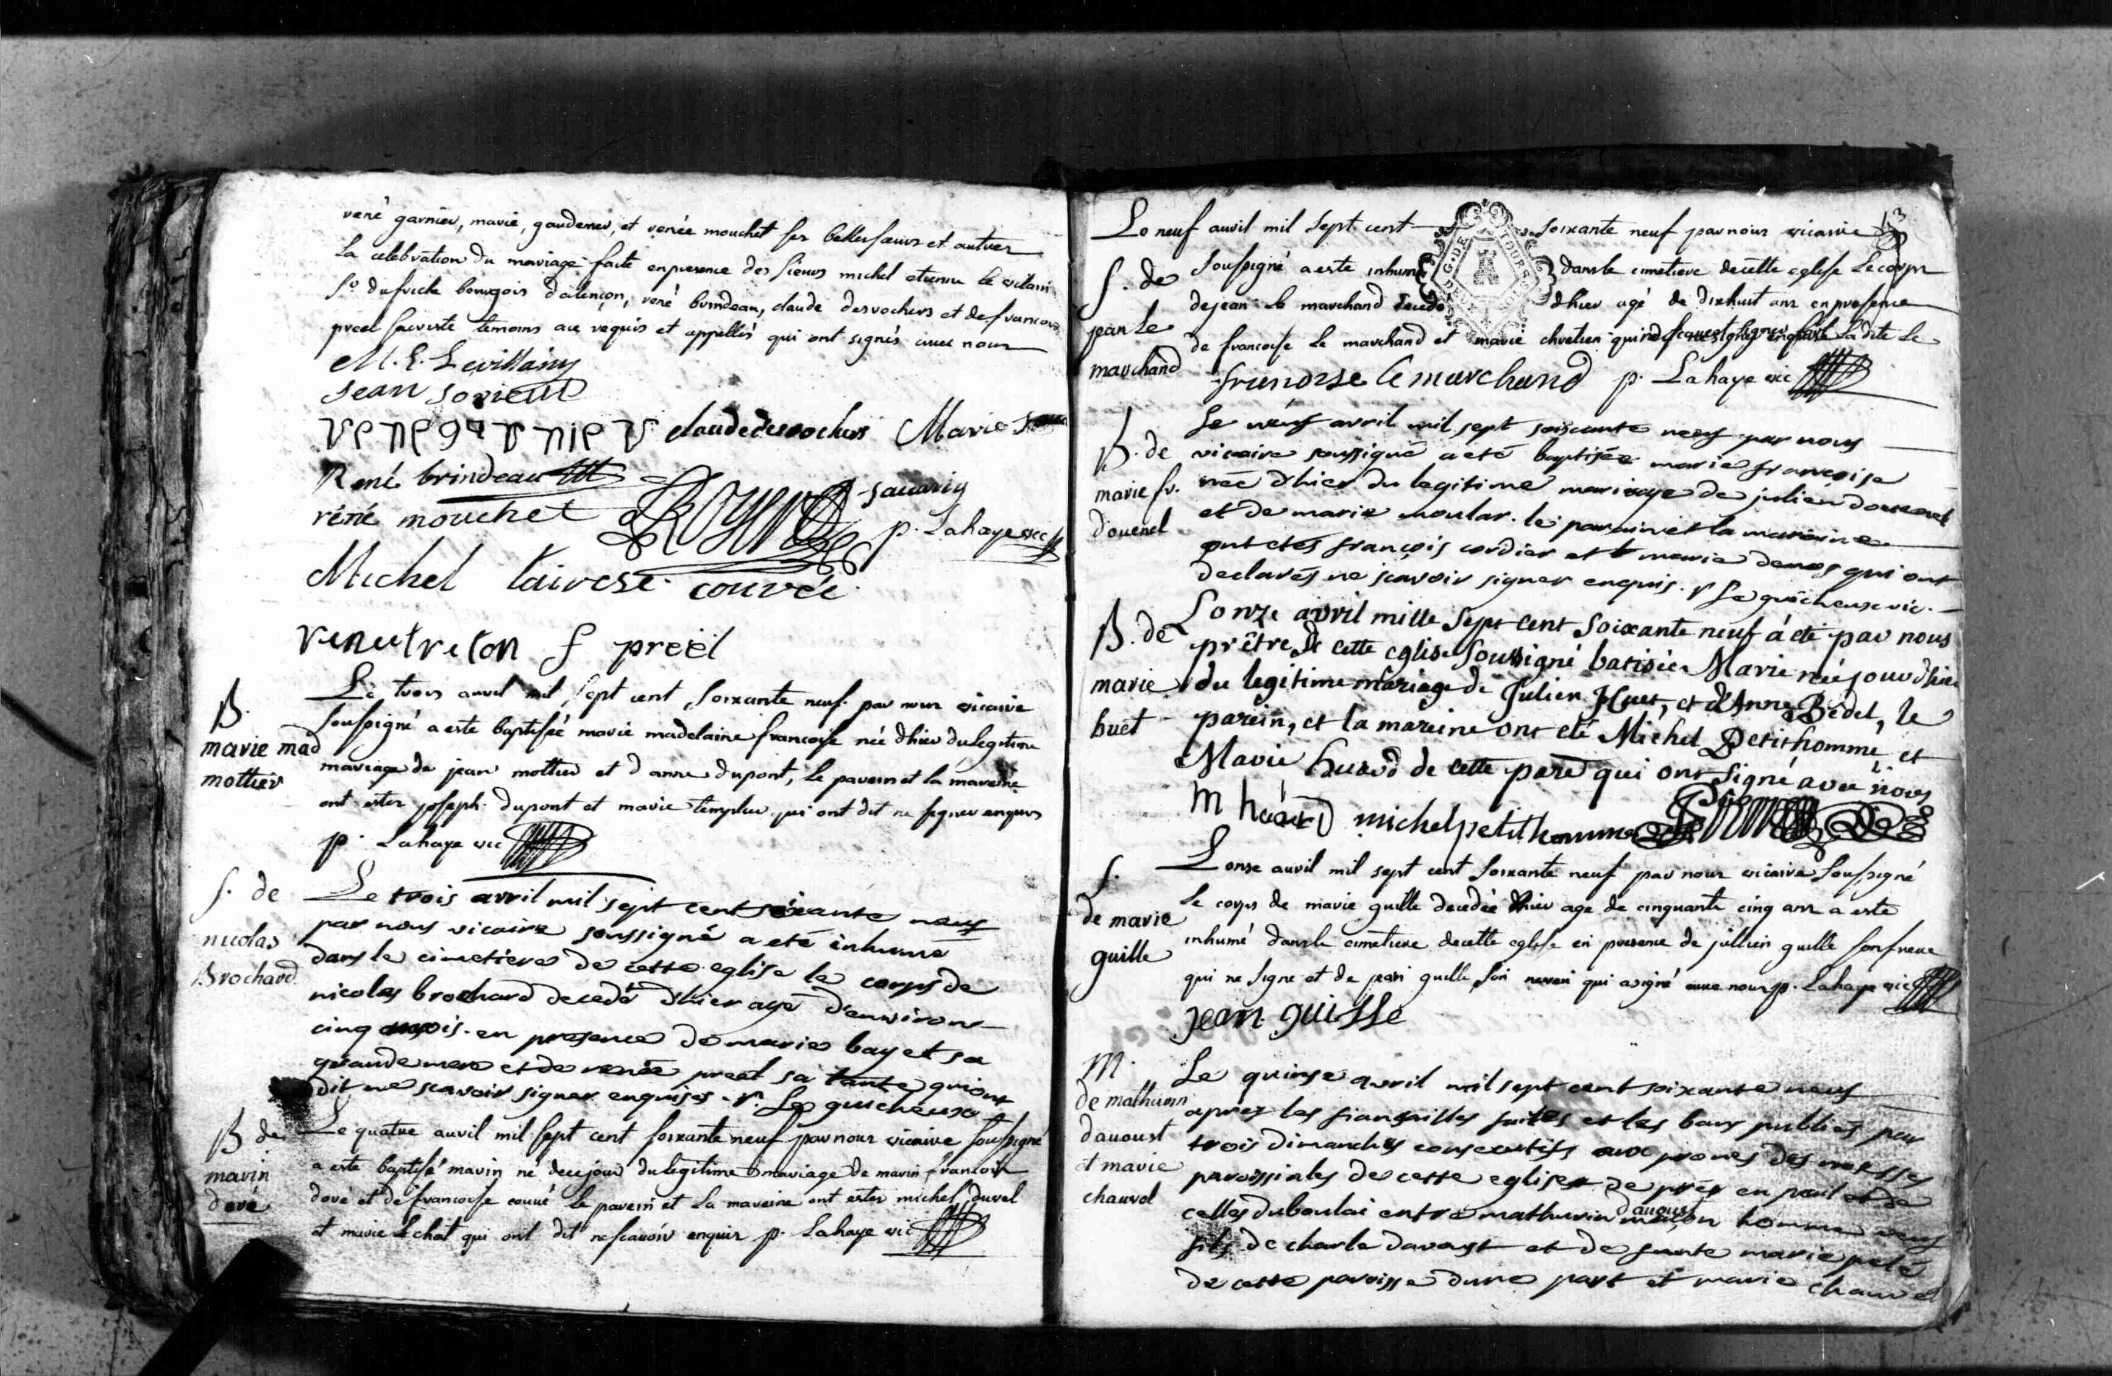 rené garnier, marie, gaudemer, et renée mouchet ses belles sœurs et autres
la celebration du mariage faite en presence des sieurs michel etienne le vilain
Sr. dufriche bourgois d'alençon, rené brindeau, claude desrochers et de francois
preel sacriste temoins au requis et appellés qui ont signés avec nous
M. E. Levillain
jean
rene garnier claude desrochers Marie
René brindeau savary
réné mouchet ROYER p. Lahaye vic
Michel tairese couvée
rene treton f preel
B.
marie mad
mottier
Le trois avril mil sept cent soixante neuf par nous vicaire
soussigné a esté baptisée marie madelaine francoise née d'hier du legitime
mariage de jean mottier et d'anne dupont, le parein et la mareine
ont estes joseph dupont et marie templer qui ont dit ne signer enquis
p. Lahaye vic
S. de
nicolas
Brochard
Le trois avril mil sept cent soixante neuf
par nous vicaire soussigné a eté inhumé
dans le cimetiere de cette eglise le corps de
nicolas brochard decedé d'hier agé d'environ
cinq mois. en presence de marie bayet sa
grande mere et de renée preel sa tante qui ont
dit ne scavoir signer enquises. r. Le guicheux
B de
marin
doré
Le quatre avril mil sept cent soixante neuf par nous vicaire soussigné
a esté baptisé marin né de ce jour du legitime mariage de marin francois
doré et de francoise couvé le parein et la mareine ont estes michel duval
et marie lechat qui ont dit ne scavoir enquis p. Lahaye vic
13
G. DE TOURS
Le neuf avril mil sept cent soixante neuf par nous vicaire
S. de
jean le
marchand
soussigné a esté inhumé dans le cimetiere de cette eglise le corps
de jean le marchand decedé d'hier agé de dixhuit ans en presence
de francoise le marchand et marie chretien qui ne la dite le
francoise le marchand p. Lahaye vic
B. de
marie fr.
douenel
Le neuf avril mil sept soixante neuf par nous
vicaire soussigné a eté baptisée marie françoise
née d'hier du legitime mariage de julien douenel
et de marie moular. le parain et la maraine
ont etés françois cordier et marie denos qui ont
declarés ne scavoir signer enquis. r Le guicheux vic.
B. de
marie
huet
Lonze avril mille sept cent soixante neuf à été par nous
prêtre de cette eglise soussigné batisée Marie née jour d'hier
du legitime mariage de Julien Huet, et d'Anne Bedel, le
parein, et la mareine ont eté Michel Petithomme et
Marie huard de cette parse qui ont signé avec nous
m huard michel petithomme
S.
de marie
guille
Lonse avril mil sept cent soixante neuf par nous vicaire soussigné
le corps de marie guille decedée d'hier age de cinquante cinq ans a esté
inhumé dans le cimetiere de cette eglise en presence de jullien guille son frere
qui ne signe et de jean guille son neveu qui a signé avec nous p. Lahaye vic
jean guille
M.
de mathurin
davoust
et marie
chauvel
Le quinse avril mil sept cent soixante neuf
après les fiançailles faites et les bans publiés par
trois dimanches consecutifs aux prones des messes
paroissiales de cette eglise de prés en pail et de
celles du boulai entre mathurin davoust homme veuf
fils de charle davoust et de funte marie pelé
de cette paroisse d'une part et marie chauvel